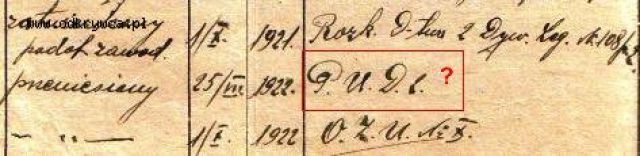 www.odkrywca.pl
podof. zawod. 1/X. 1921. Rozk. D-twa 2 Dyw. Leg. N. 108
przeniesiony 25/III. 1922. P. U. D. L. ?
— „ — 1/X. 1922 O. Z. U. № X.